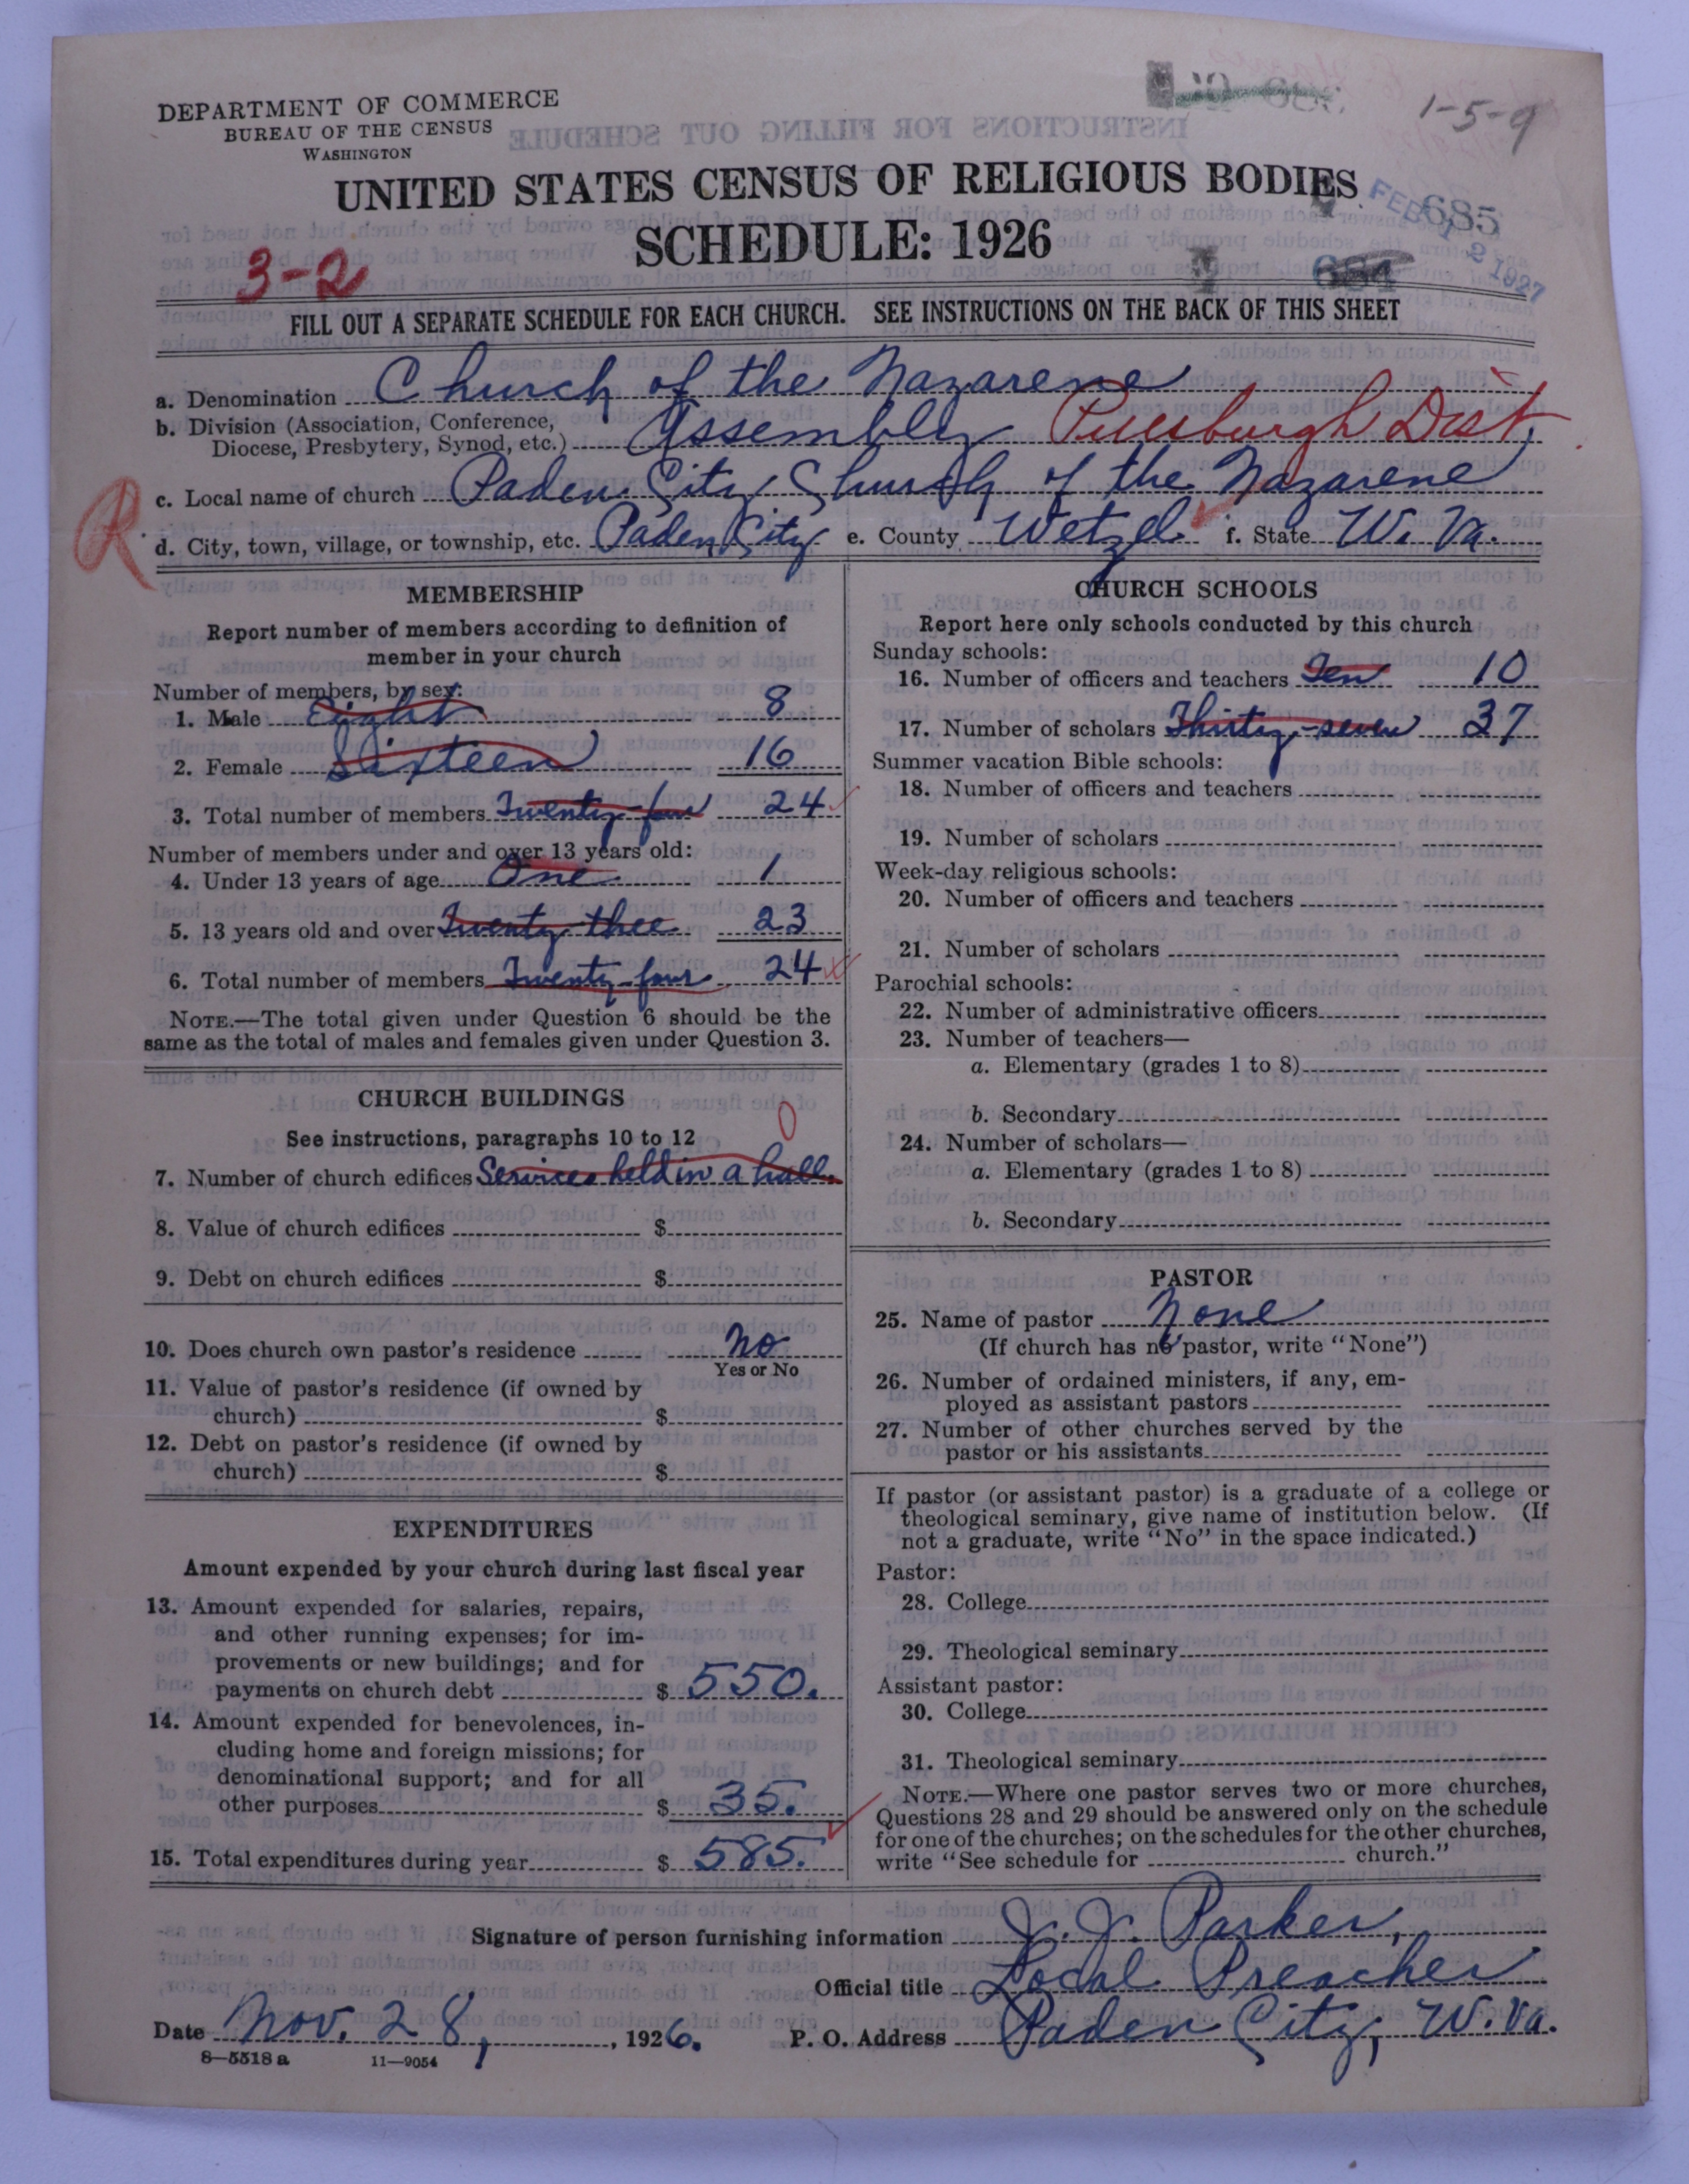 DEPARTMENT OF COMMERCE
BUREAU OF THE CENSUS
WASHINGTON
1-5-9
UNITED STATES CENSUS OF RELIGIOUS BODIES
SCHEDULE: 1926
685
FEB 12 1927
3-2
FILL OUT A SEPARATE SCHEDULE FOR EACH CHURCH. SEE INSTRUCTIONS ON THE BACK OF THIS SHEET
a. Denomination Church of the Nazarene
b. Division (Association, Conference,
Diocese, Presbytery, Synod, etc.) Assembly Pittsburgh Dist.
c. Local name of church Paden City Church of the Nazarene
R
d. City, town, village, or township, etc. Paden City e. County Wetzel f. State W. Va.
MEMBERSHIP
Report number of members according to definition of
member in your church
Number of members, by sex:
1. Male Eight 8
2. Female Sixteen 16
3. Total number of members Twenty-four 24
Number of members under and over 13 years old:
4. Under 13 years of age One 1
5. 13 years old and over Twenty-thee 23
6. Total number of members Twenty-four 24
NOTE.—The total given under Question 6 should be the
same as the total of males and females given under Question 3.
CHURCH BUILDINGS
See instructions, paragraphs 10 to 12
0
7. Number of church edifices Services held in a hall.
8. Value of church edifices $
9. Debt on church edifices $
10. Does church own pastor's residence No
Yes or No
11. Value of pastor's residence (if owned by
church) $
12. Debt on pastor's residence (if owned by
church) $
EXPENDITURES
Amount expended by your church during last fiscal year
13. Amount expended for salaries, repairs,
and other running expenses; for im-
provements or new buildings; and for
payments on church debt $ 550.
14. Amount expended for benevolences, in-
cluding home and foreign missions; for
denominational support; and for all
other purposes $ 35.
15. Total expenditures during year $ 585.
CHURCH SCHOOLS
Report here only schools conducted by this church
Sunday schools:
16. Number of officers and teachers Ten 10
17. Number of scholars Thirty-seven 37
Summer vacation Bible schools:
18. Number of officers and teachers
19. Number of scholars
Week-day religious schools:
20. Number of officers and teachers
21. Number of scholars
Parochial schools:
22. Number of administrative officers
23. Number of teachers—
a. Elementary (grades 1 to 8)
b. Secondary
24. Number of scholars—
a. Elementary (grades 1 to 8)
b. Secondary
PASTOR
25. Name of pastor None
(If church has no pastor, write "None")
26. Number of ordained ministers, if any, em-
ployed as assistant pastors
27. Number of other churches served by the
pastor or his assistants
If pastor (or assistant pastor) is a graduate of a college or
theological seminary, give name of institution below. (If
not a graduate, write "No" in the space indicated.)
Pastor:
28. College
29. Theological seminary
Assistant pastor:
30. College
31. Theological seminary
NOTE.—Where one pastor serves two or more churches,
Questions 28 and 29 should be answered only on the schedule
for one of the churches; on the schedules for the other churches,
write "See schedule for church."
Signature of person furnishing information J. J. Parker,
Official title Local Preacher
Date Nov. 28, 1926. P. O. Address Paden City, W. Va.
8-5518 a 11-9054